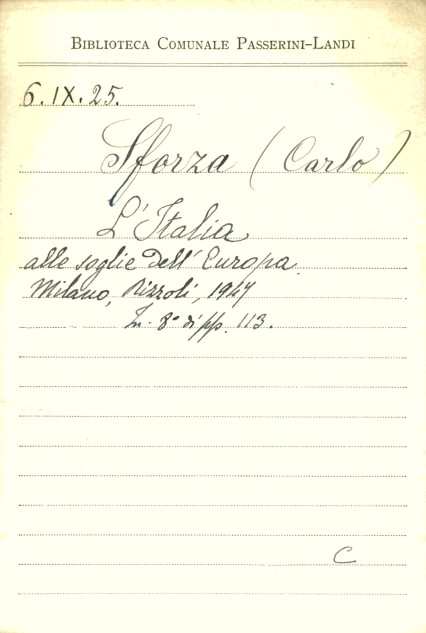 BIBLIOTECA COMUNALE PASSERINI-LANDI
6.IX.25.
Sforza (Carlo)
L'Italia
alle soglie dell'Europa.
Milano, Rizzoli, 1947
In. 8° di pp. 113.
C